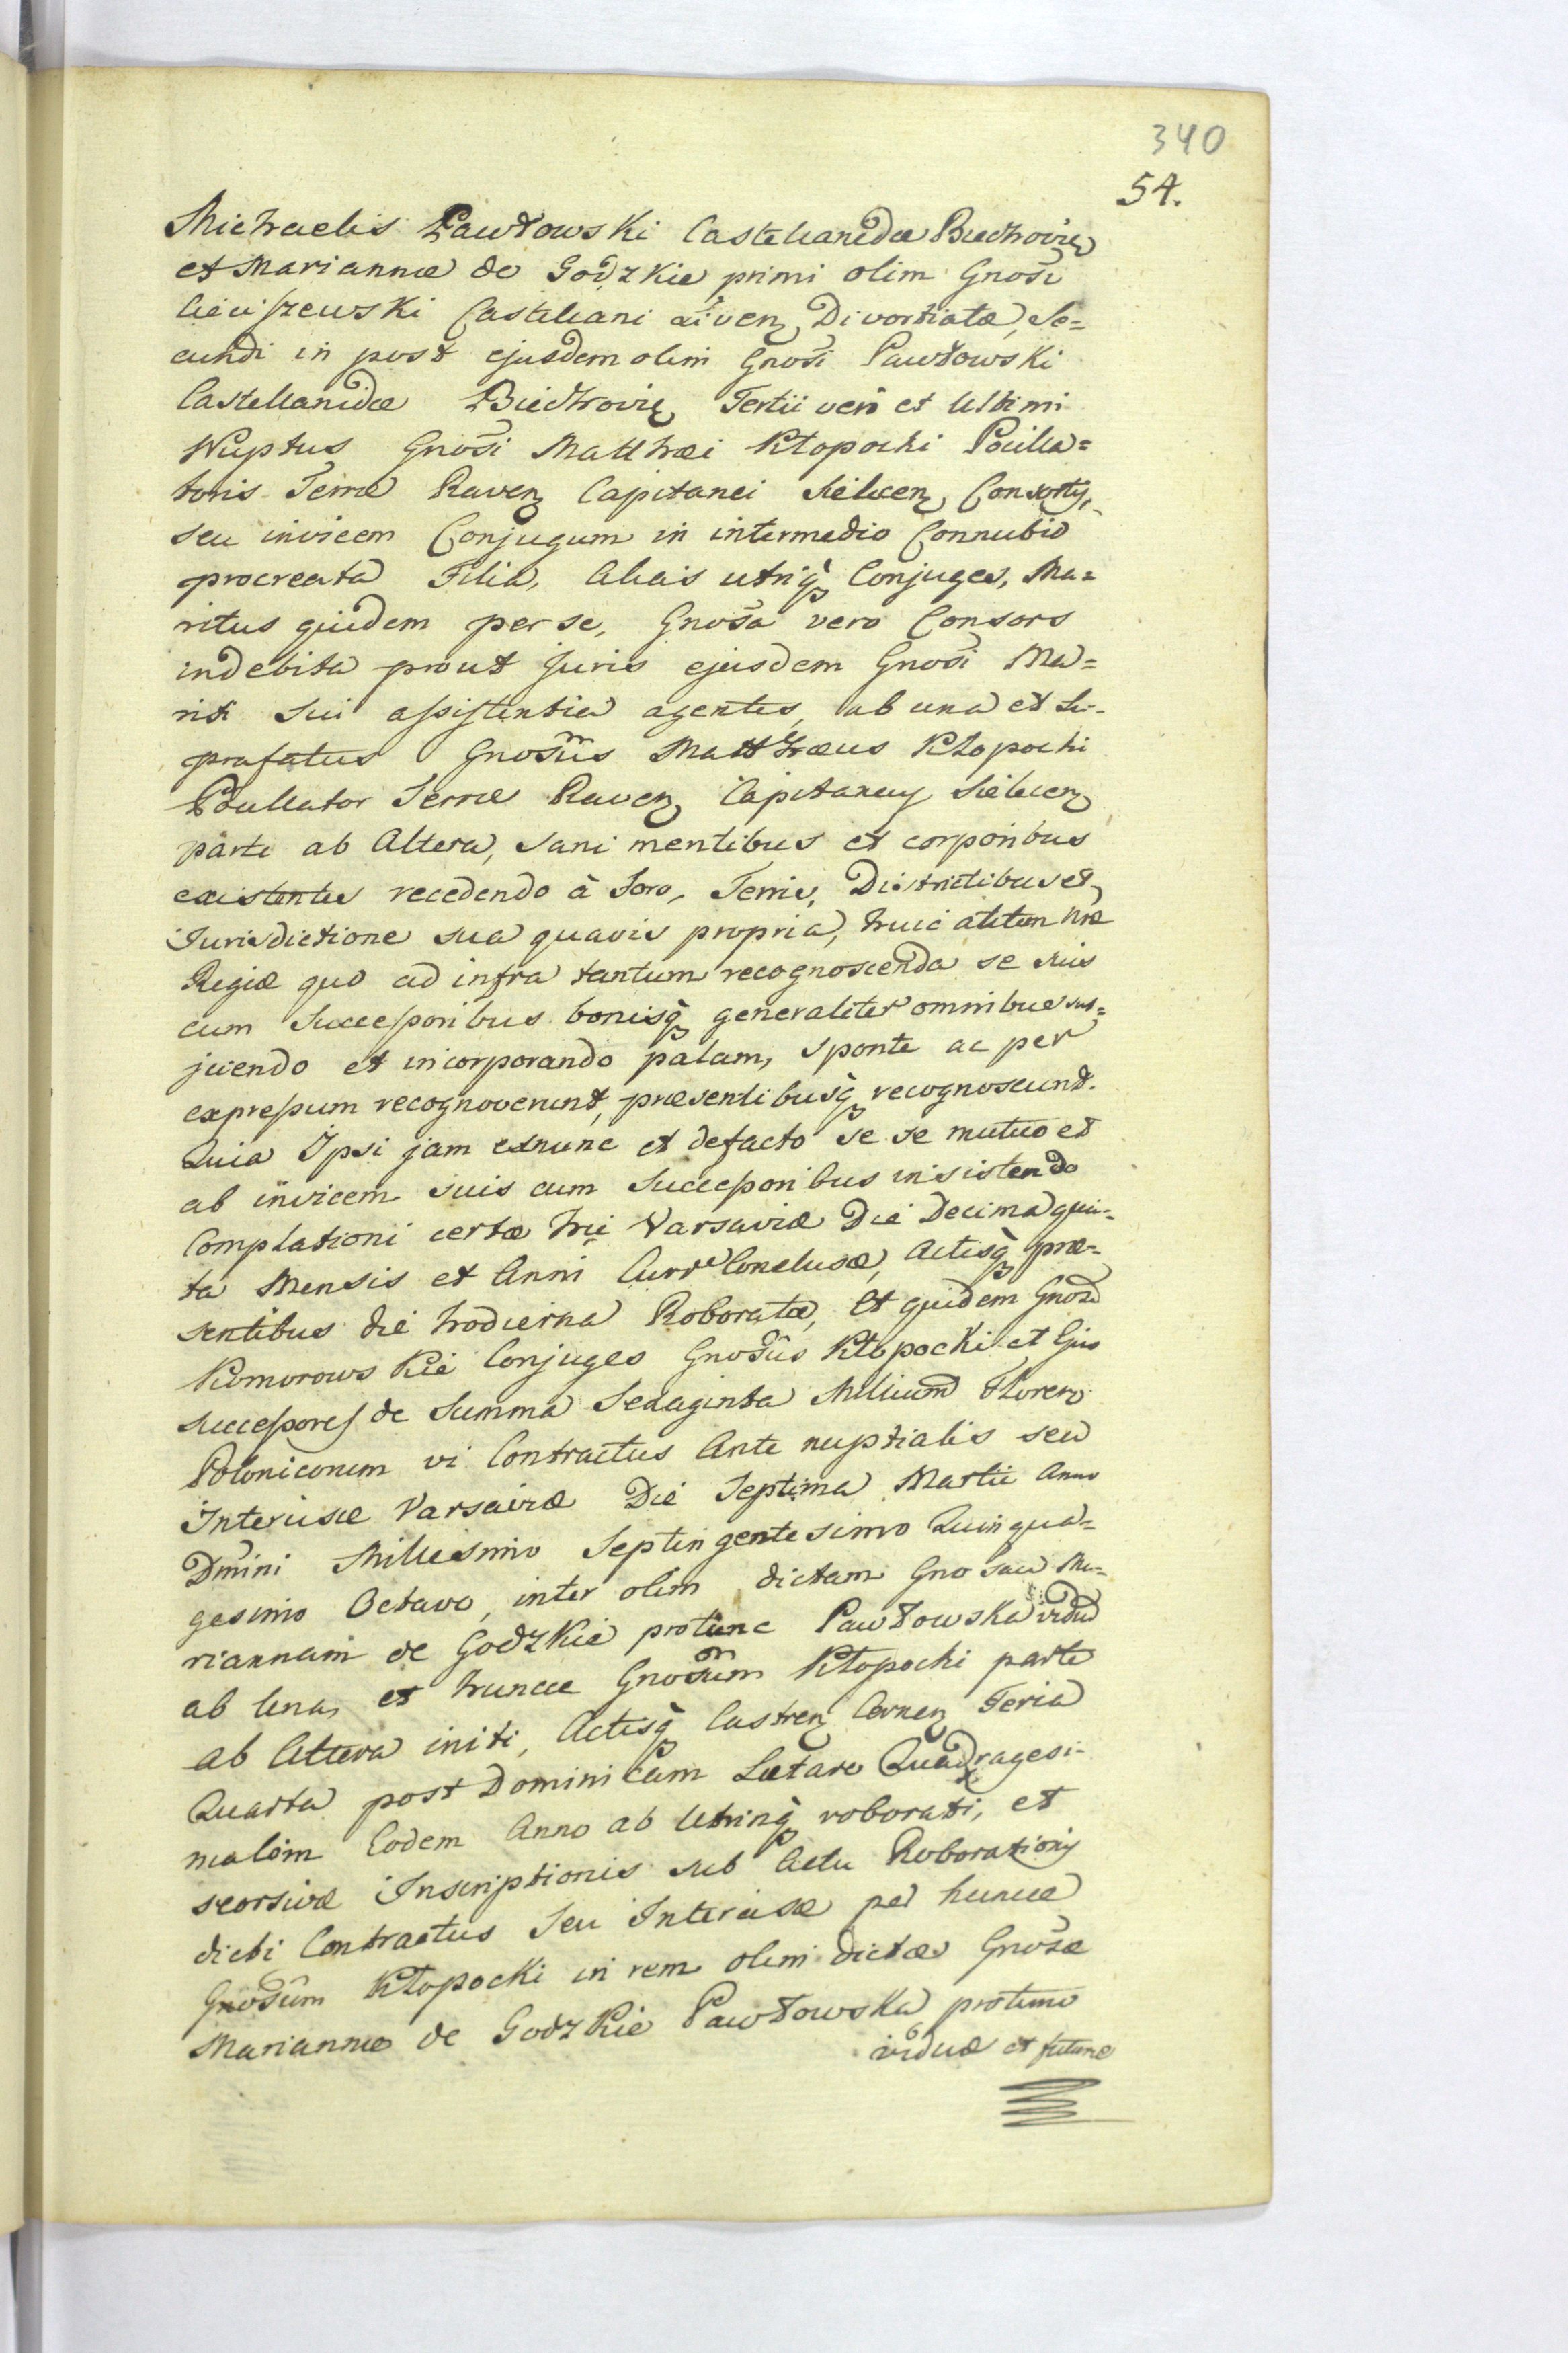 340
54.
Michaelis Pawłowski Castellanidæ Biechovień
et Mariannæ de Godzkie primi olim Gnosi
Cieciszewski Castellani Liven Divortiatæ, Se=
cundi in post ejusdem olim Gnosi Pawłowski
Castellanidæ Biechovien Tertii vero et Ultimi
Nuptus Gnosi Matthæi Kłopocki Pocilla=
toris Terræ Raven Capitanei Sielecen Consorty,
seu invicem Conjugum in intermedio Connubio
procreata Filia, Alias utriq Conjuges, Ma=
ritus quidem per se, Gnosa vero Consors
indebita prout Juris ejusdem Gnosi Ma=
riti sui assistentia agentes, ab una et Su=
prafatus Gnosus Matthæus Kłopocki
Pocillator Terræ Raven Capitaney Sielecen
parte ab Altera, sani mentibus et corporibus
existentes recedendo à Foro, Terris, Districtibus et
Jurisdictione sua quavis propria, huic autem Nræ
Regiæ quo ad infra tantum recognoscenda se suis
cum Successoribus bonisq generaliter omnibus sub=
jiciendo et incorporando palam, sponte ac per
expressum recognoverunt, præsentibusq recognoscunt.
Quia Ipsi jam exnunc et defacto se se mutuo et
ab invicem suis cum Successoribus insistendo
Complationi certæ hic Varsaviæ Die Decima quin=
ta Mensis et Anni Curr Conclusæ, Actisq præ=
sentibus die hodierna Roboratæ, Et quidem Gnosi
Komorowskie Conjuges Gnosum Kłopocki et Ejus
Successores de Summa Sexaginta Millium Floren
Polonicorum vi Contractus Ante nuptialis seu
Intercisæ Varsaviæ Die Septima Martii Anno
Dmini Millesimo Septingentesimo Quinqua=
gesimo Octavo, inter olim dictam Gnosam Ma=
riannam de Godzkie protunc Pawłowska viduã
ab Una, et hunce Gnosum Kłopocki parte
ab Altera initi, Actisq Castren Cernen Feria
Quarta post Dominicam Lætare Quadragesi=
malem Eodem Anno ab Utrinq roborati, et
seorsivæ Inscriptionis sub Actu Roborationis
dicti Contractus seu Intercisæ per hunce
Gnosum Kłopocki in rem olim dictæ Gnosæ
Mariannæ de Godzkie Pawłowska protunc
viduæ et futuræ